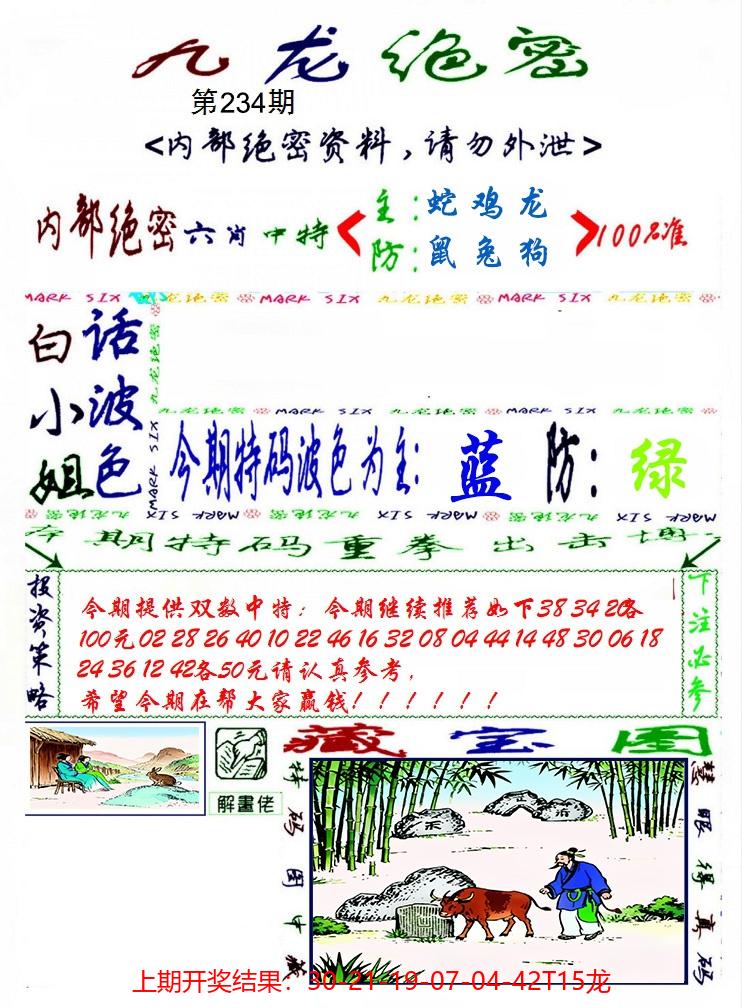 九龙绝密
第234期
<内部绝密资料,请勿外泄>
内部绝密六肖中特
主:蛇鸡龙
防:鼠兔狗
100%准
MARK SIX 九龙绝密 MARK SIX 九龙绝密 MARK SIX 九龙绝密
白小姐
话波色
九龙绝密
MARK SIX
九龙绝密 MARK SIX 九龙绝密 MARK SIX 九龙绝密
今期特码波色为主:蓝 防:绿
MARK SIX 九龙绝密 MARK SIX 九龙绝密 MARK SIX
本期特码重拳出击博
投资策略
今期提供双数中特:今期继续推荐如下38 34 20各
100元02 28 26 40 10 22 46 16 32 08 04 44 14 48 30 06 18
24 36 12 42各50元请认真参考,
希望今期在帮大家赢钱!!!!!!
下注必参
藏宝图
解畫佬
特码图中藏
慧眼得真码
上期开奖结果:30-21-19-07-04-42T15龙